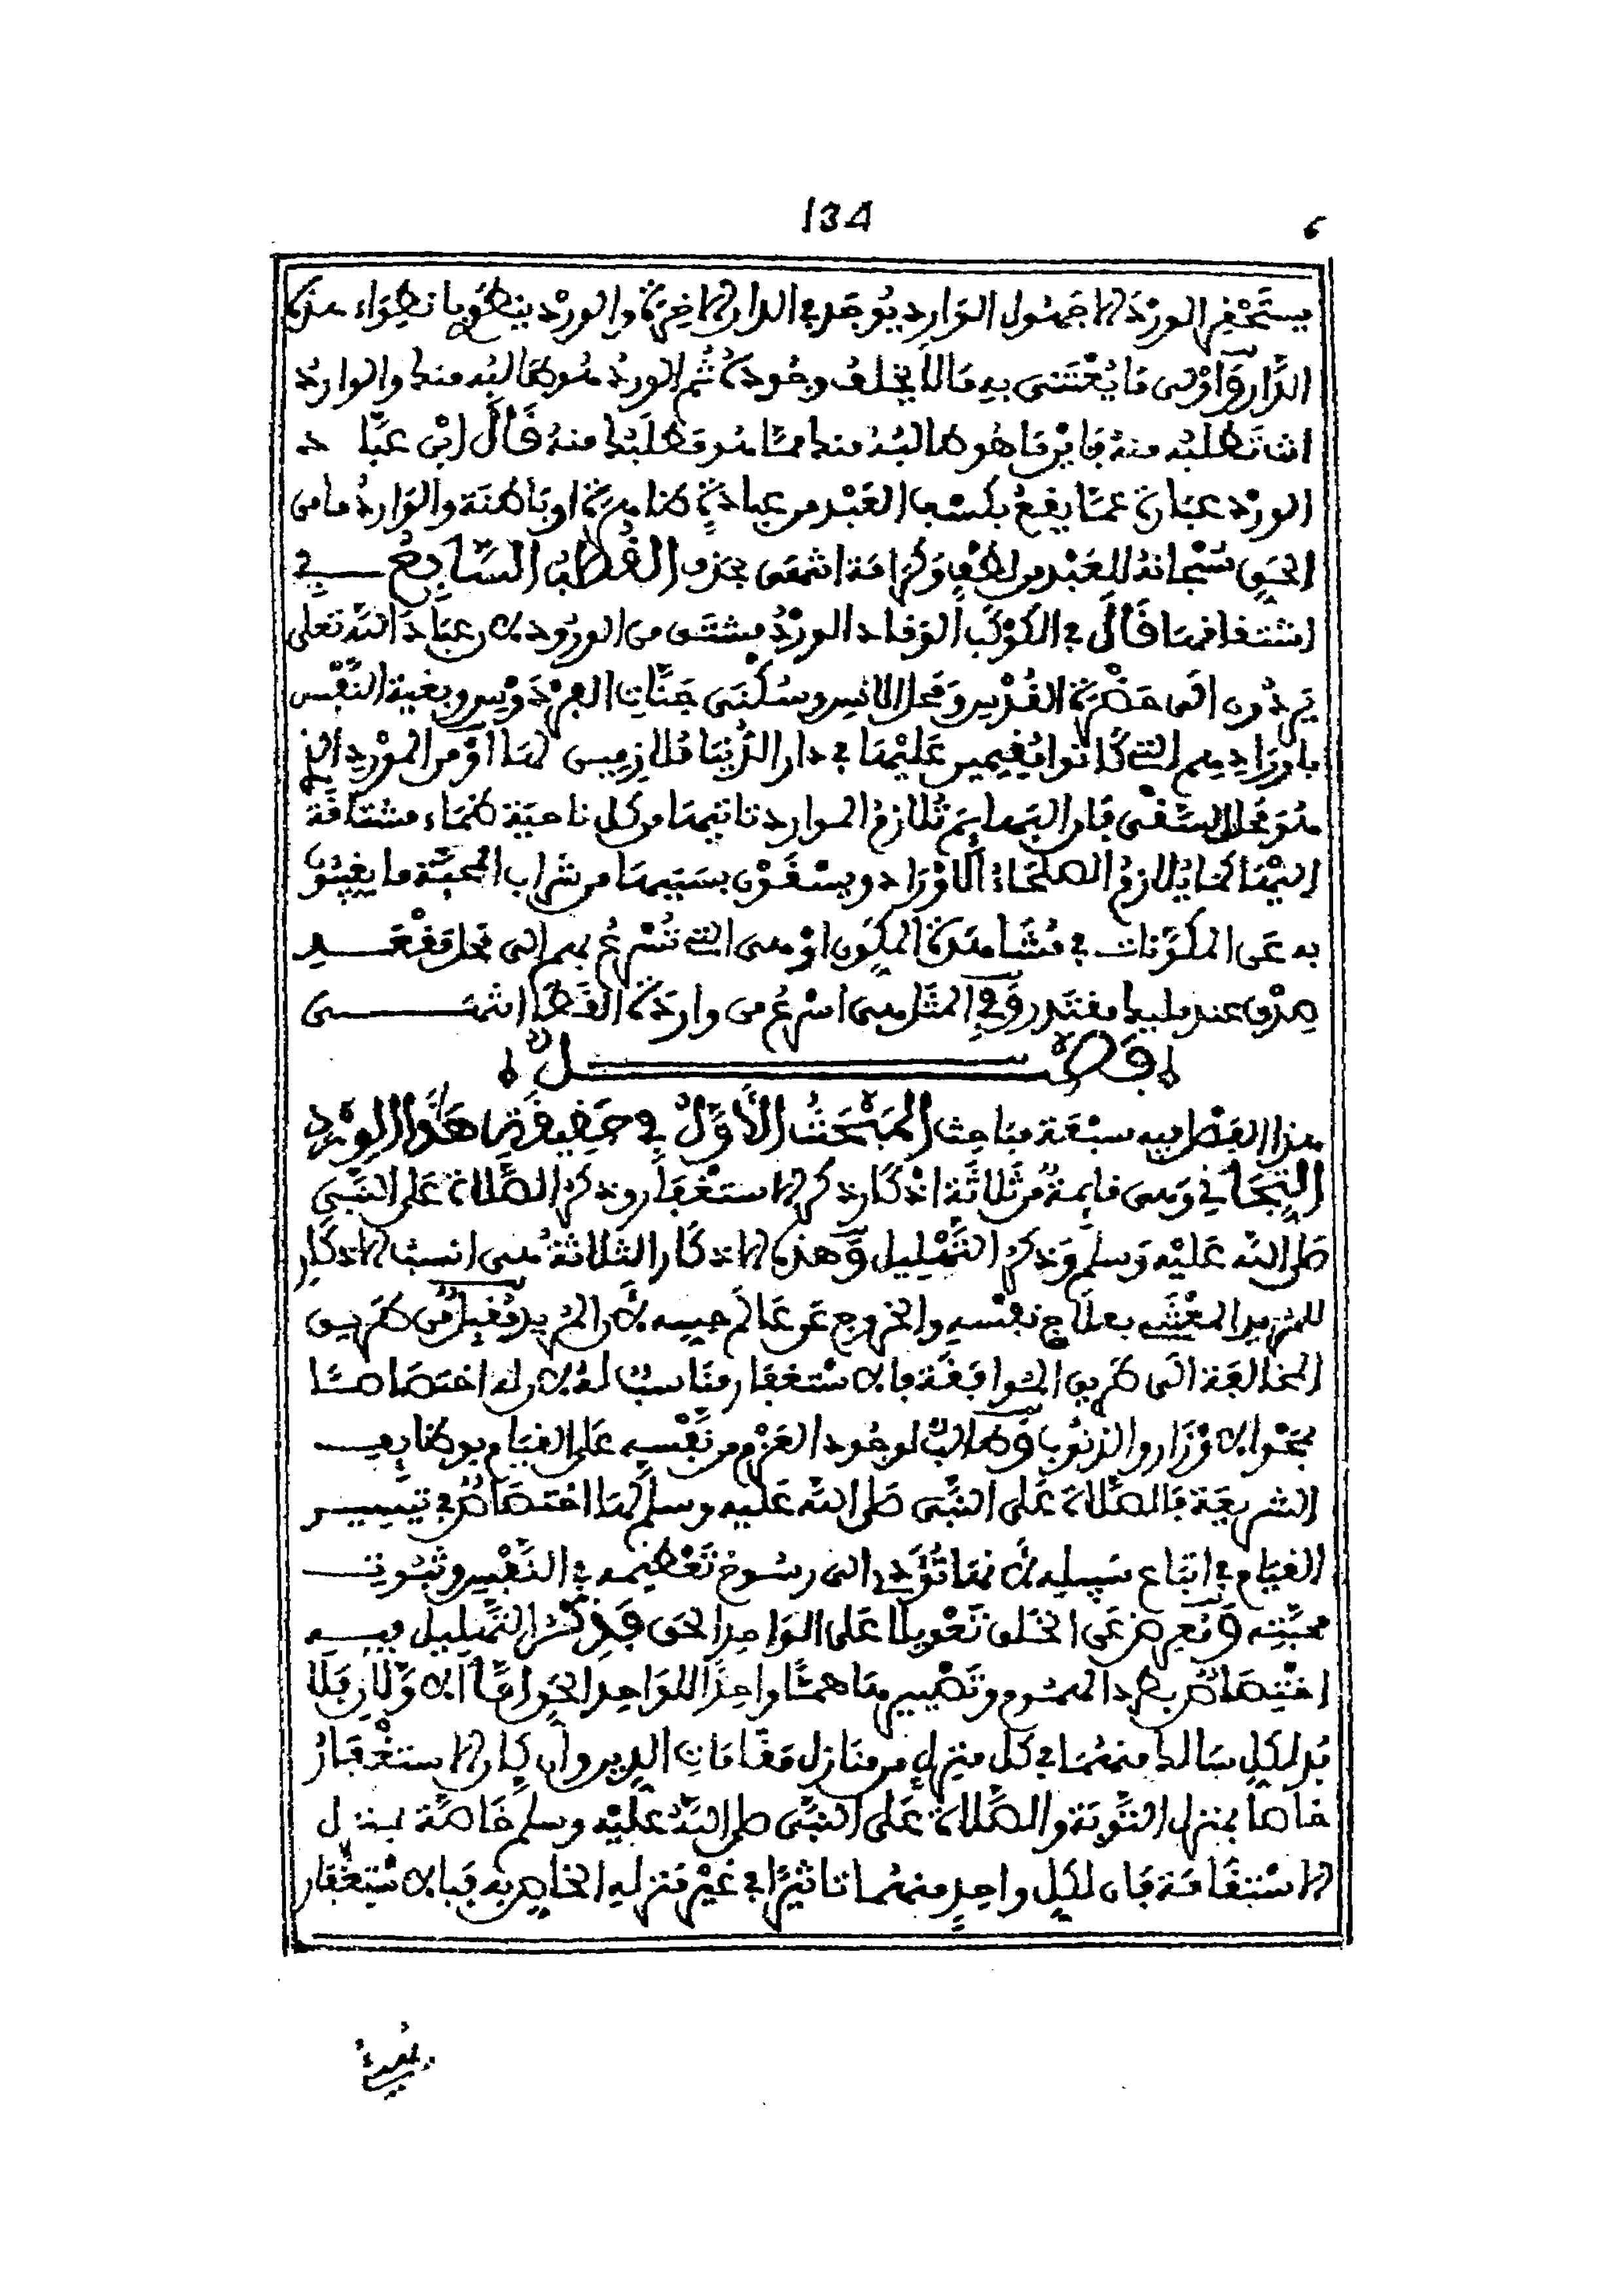 134
يستحفر الورد الا جهول الوارد يوجد في الدار الاخرة والورد ينطوي بانطواء هذه
الدار وَأولى ما يُعْتنى به ما لا يخلف وجُوده ثُم الورد هُو طالبُه منك والوارد
انت تطلبُه منه فاين ما هُو طالبُه منك مما هو مطلبك منهُ قال ابن عبّاد
الورْد عبارة عمّا يقعُ بكسب العَبْد من عبادة ظاهرة او باطنَة والوارد ما من
الحق سُبْحانهُ للعَبْد من لطف وكرامة انتهى بحذف القُطْبُ السَّابِعُ في
اشتقاقها قَالَ في الكَوْكَب الوقاد الورْدُ مشتق من الورُود لان عبَادَ الله تعلى
يَردُون الى حضرة القُدْس ومحل الانس وسُكْنى جنّات الفِرْدَوْس وبغية النَّفْس
باورَادِهم التي كَانوا مُقيمين عليْها في دار الدُّنيَا مُلازمين لها اَوْ من المَوْرِد الذي
هُوَ محل السَّقْي فان البهايم تُلازِمُ الموارد تاتيها من كل ناحيَة ظماء مشتاقَة
اليْها كما يُلازمُ الصُّلَحَاءُ الاوْرَاد ويسْقَوْن بسببها من شراب المحبّة ما يغيبُون
به عن المكوّنات في مُشَاهَدة المكَوِّن اوْ هي التي تُسْرِعُ بهم الى محل مقْعَد
صِدْق عند مليك مقتَدر وَفي المثَل هي اسْرعُ من واردَة القَطَا انتهى
فَصْلٌ
هذا الفصْل فيه سبْعَة مبَاحث المَبْحَثُ الأَوَّلُ في حَقِيقَةِ هَذَا الوِرْدِ
التِّجَانِي وَهي قايمةٌ من ثلاثَة اذْكار ذكر الاستغْفَار وذكرُ الصَّلاة على النَّبي
صَلى الله عَليْه وَسلم وَذِكْرُ التَّهْلِيل وَهذه الاذكَار الثلاثةُ هي انسب الاذكار
للمريد المعْتَني بعلاج نفْسِهِ والخروج عَن عَالَم حسه لأن المُريد مُقبِلٌ من طَريق
المخالفة الى طريق الموَافقَة فالاسْتغفَار مناسبٌ لهُ لان له اختصَاصًا
بمحْو الاوْزَار والذنُوب وَطالبٌ لوجُود العَزْم من نَفْسه عَلى القيَام بوظايِف
الشريعَة فالصَّلاة عَلى النَّبي صَلى الله عَليه وسلم لَها اخْتصَاصٌ في تيسير
القيَام في اتبَاع سَبيله لأَنهَا تُؤَدي الى رسُوخ تَعْظيمه في النَّفْس وثبُوت
محبَّته وَمُعرض عَن الخَلق تَعْويلًا عَلى الوَاحِد الحَق فَذِكْرُ التَّهْلِيل فيه
اخْتِصَاصٌ بطرد الهمُوم وتَصْيِيرهَا همًّا واحِدًا للوَاحِد الحَق امَّا الاوّلان فَلا
بُد لكلِ سَالك منهُمَا في كل منزِل من منازل مَقَامَات الدِين وان كَان الاستغْفَارُ
خَاصا بمنزل التَّوبَة والصَّلاة عَلى النَّبي صلى اللهُ عليْه وسلم خاصَّة بمنزل
الاسْتقَامَة فان لكل واحِدٍ منهُما تاثيرًا في غيْر مَنزلهِ الخاص به فبالاسْتغْفار